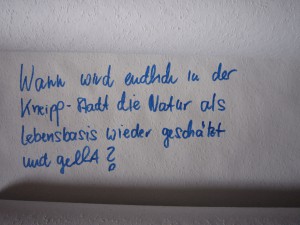 Wann wird endlich in der
Kneipp-Stadt die Natur als
Lebensbasis wieder geschätzt
und gelebt?